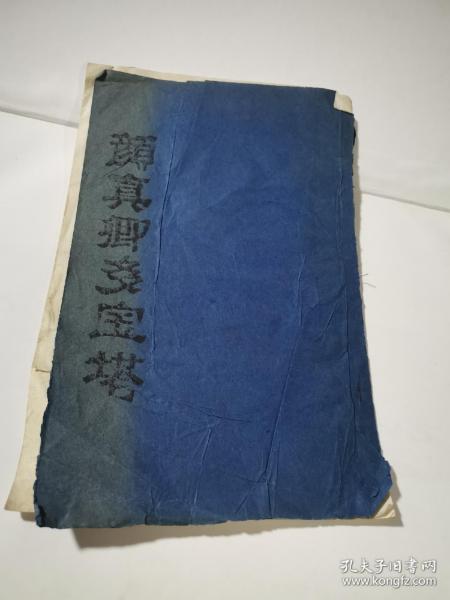 顔真卿多宝塔
孔夫子旧书网
www.kongfz.com